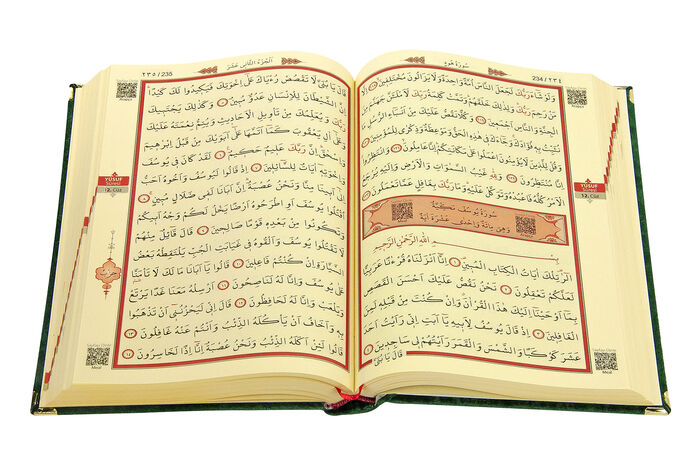 سُورَةُ هُودٍ
234/٢٣٤
وَلَوْ شَاءَ رَبُّكَ لَجَعَلَ النَّاسَ اُمَّةً وَاحِدَةً وَلَا يَزَالُونَ مُخْتَلِفِينَ ١١٨ اِلَّا
مَنْ رَحِمَ رَبُّكَ وَلِذٰلِكَ خَلَقَهُمْ وَتَمَّتْ كَلِمَةُ رَبِّكَ لَاَمْلَـَٔنَّ جَهَنَّمَ مِنَ
الْجِنَّةِ وَالنَّاسِ اَجْمَعِينَ ١١٩ وَكُلًّا نَقُصُّ عَلَيْكَ مِنْ اَنْبَاءِ الرُّسُلِ مَا
نُثَبِّتُ بِهِ فُؤَادَكَ وَجَاءَكَ فِي هٰذِهِ الْحَقُّ وَمَوْعِظَةٌ وَذِكْرٰى لِلْمُؤْمِنِينَ ١٢٠
وَقُلْ لِلَّذِينَ لَا يُؤْمِنُونَ اعْمَلُوا عَلٰى مَكَانَتِكُمْ اِنَّا عَامِلُونَ ١٢١ وَانْتَظِرُوا
اِنَّا مُنْتَظِرُونَ ١٢٢ وَلِلّٰهِ غَيْبُ السَّمٰوَاتِ وَالْاَرْضِ وَاِلَيْهِ يُرْجَعُ
الْاَمْرُ كُلُّهُ فَاعْبُدْهُ وَتَوَكَّلْ عَلَيْهِ وَمَا رَبُّكَ بِغَافِلٍ عَمَّا تَعْمَلُونَ ١٢٣
سُورَةُ يُوسُفَ مَكِّيَّةٌ
وَهِيَ مِائَةٌ وَاِحْدٰى عَشْرَةَ اٰيَةً
بِسْمِ اللّٰهِ الرَّحْمٰنِ الرَّحِيمِ
الٓرٰ تِلْكَ اٰيَاتُ الْكِتَابِ الْمُبِينِ ١ اِنَّا اَنْزَلْنَاهُ قُرْاٰنًا عَرَبِيًّا
لَعَلَّكُمْ تَعْقِلُونَ ٢ نَحْنُ نَقُصُّ عَلَيْكَ اَحْسَنَ الْقَصَصِ
بِمَا اَوْحَيْنَا اِلَيْكَ هٰذَا الْقُرْاٰنَ وَاِنْ كُنْتَ مِنْ قَبْلِهِ لَمِنَ
الْغَافِلِينَ ٣ اِذْ قَالَ يُوسُفُ لِاَبِيهِ يَا اَبَتِ اِنِّي رَاَيْتُ اَحَدَ
عَشَرَ كَوْكَبًا وَالشَّمْسَ وَالْقَمَرَ رَاَيْتُهُمْ لِي سَاجِدِينَ ٤
قَالَ يَا بُنَيَّ
YÛSUF
Sûresi
12. Cüz
Meal
الْجُزْءُ الثَّانِي عَشَرَ
٢٣٥/235
قَالَ يَا بُنَيَّ لَا تَقْصُصْ رُءْيَاكَ عَلٰى اِخْوَتِكَ فَيَكِيدُوا لَكَ كَيْدًا
اِنَّ الشَّيْطَانَ لِلْاِنْسَانِ عَدُوٌّ مُبِينٌ ٥ وَكَذٰلِكَ يَجْتَبِيكَ
رَبُّكَ وَيُعَلِّمُكَ مِنْ تَأْوِيلِ الْاَحَادِيثِ وَيُتِمُّ نِعْمَتَهُ عَلَيْكَ
وَعَلٰى اٰلِ يَعْقُوبَ كَمَا اَتَمَّهَا عَلٰى اَبَوَيْكَ مِنْ قَبْلُ اِبْرٰهِيمَ
وَاِسْحٰقَ اِنَّ رَبَّكَ عَلِيمٌ حَكِيمٌ ٦ لَقَدْ كَانَ فِي يُوسُفَ
وَاِخْوَتِهِ اٰيَاتٌ لِلسَّائِلِينَ ٧ اِذْ قَالُوا لَيُوسُفُ وَاَخُوهُ اَحَبُّ
اِلٰى اَبِينَا مِنَّا وَنَحْنُ عُصْبَةٌ اِنَّ اَبَانَا لَفِي ضَلَالٍ مُبِينٍ ٨
اُقْتُلُوا يُوسُفَ اَوِ اطْرَحُوهُ اَرْضًا يَخْلُ لَكُمْ وَجْهُ اَبِيكُمْ
وَتَكُونُوا مِنْ بَعْدِهِ قَوْمًا صَالِحِينَ ٩ قَالَ قَائِلٌ مِنْهُمْ
لَا تَقْتُلُوا يُوسُفَ وَاَلْقُوهُ فِي غَيَابَتِ الْجُبِّ يَلْتَقِطْهُ بَعْضُ
السَّيَّارَةِ اِنْ كُنْتُمْ فَاعِلِينَ ١٠ قَالُوا يَا اَبَانَا مَا لَكَ لَا تَأْمَنَّا
عَلٰى يُوسُفَ وَاِنَّا لَهُ لَنَاصِحُونَ ١١ اَرْسِلْهُ مَعَنَا غَدًا يَرْتَعْ
وَيَلْعَبْ وَاِنَّا لَهُ لَحَافِظُونَ ١٢ قَالَ اِنِّي لَيَحْزُنُنِي اَنْ تَذْهَبُوا
بِهِ وَاَخَافُ اَنْ يَأْكُلَهُ الذِّئْبُ وَاَنْتُمْ عَنْهُ غَافِلُونَ ١٣
قَالُوا لَئِنْ اَكَلَهُ الذِّئْبُ وَنَحْنُ عُصْبَةٌ اِنَّا اِذًا لَخَاسِرُونَ ١٤
YÛSUF
Sûresi
12. Cüz
Meal